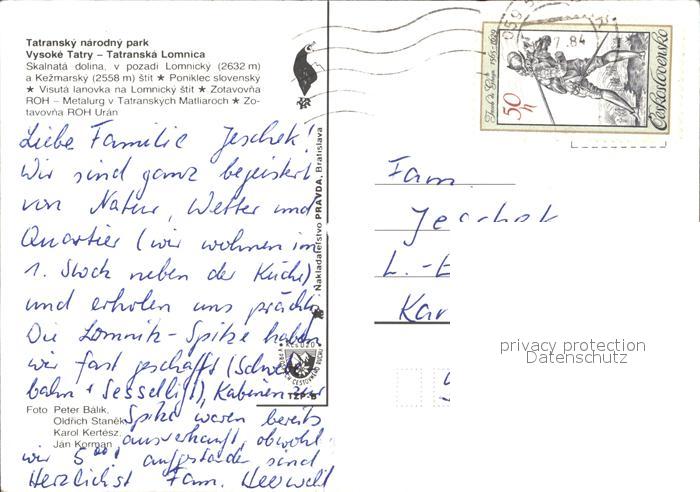 Tatranský národný park
Vysoké Tatry – Tatranská Lomnica
Skalnatá dolina, v pozadí Lomnický (2632 m)
a Kežmarský (2558 m) štít ★ Poniklec slovenský
★ Visutá lanovka na Lomnický štít ★ Zotavovňa
ROH – Metalurg v Tatranských Matliaroch ★ Zo-
tavovňa ROH Urán
Liebe Familie Jeschek!
Wir sind ganz begeistert
von Natur, Wetter und
Quartier (wir wohnen im
1. Stock neben der Küche)
und erholen uns prächtig
Die Lomnitz-Spitze haben
wir fast geschafft (Schwebe
bahn + Sessellift), Kabinen zur
Spitze waren bereits
ausverkauft, obwohl
wir 5 00 aufgestanden sind
Herzlichst Fam.
Foto Peter Bálik,
Oldřich Staněk,
Karol Kertész,
Ján Korman
Nakladateľstvo PRAVDA, Bratislava
Kčs 0,20
TZP-5
7.84
50 h
Československo
Fam.
L.-
Kar
privacy protection
Datenschutz